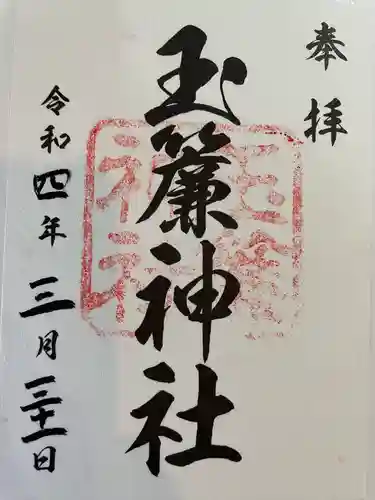 奉拝
玉簾神社
令和四年三月三十一日